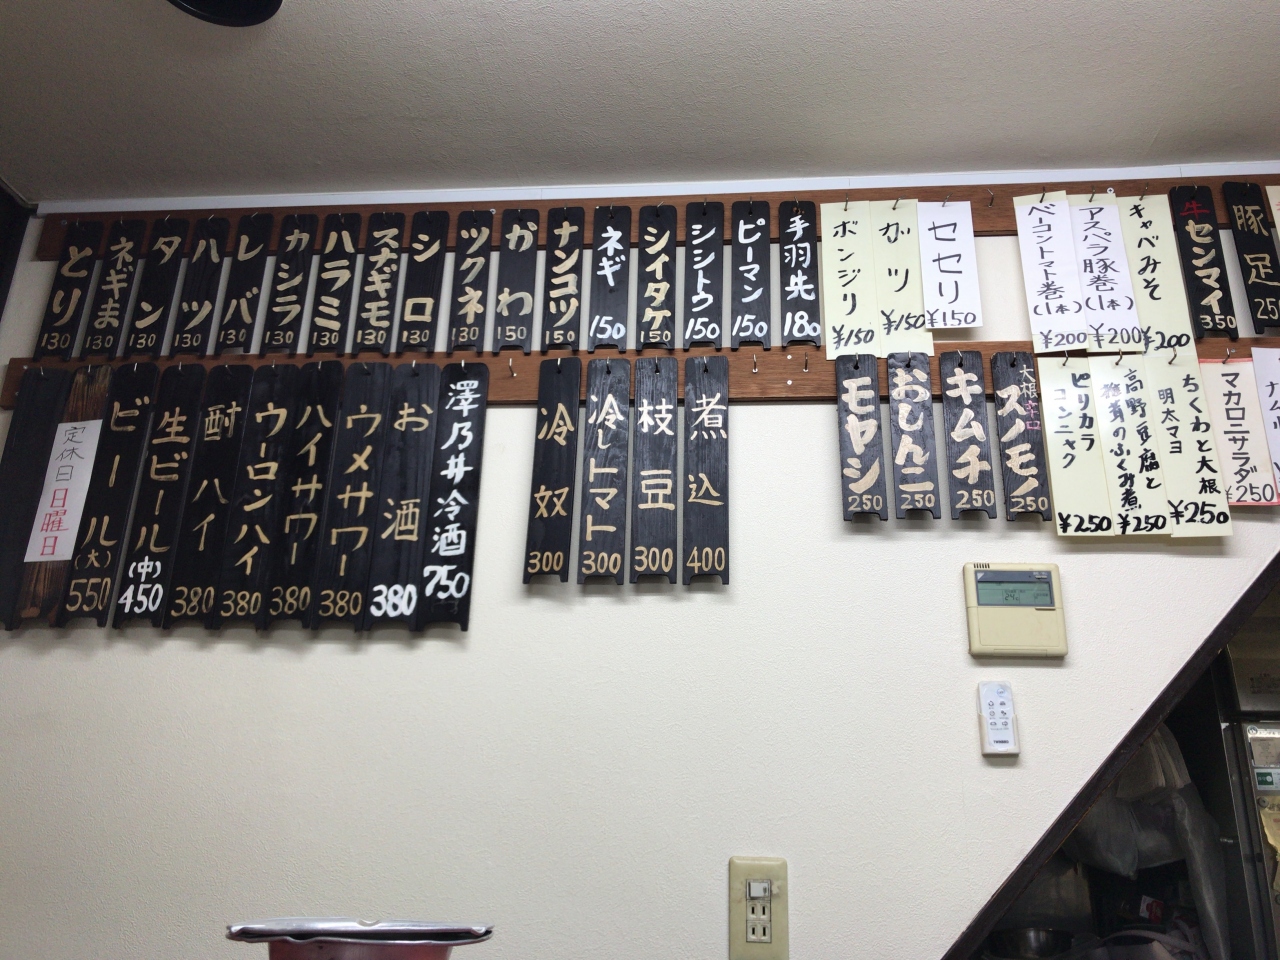 とり 130
ネギま 130
タン 130
ハツ 130
レバ 130
カシラ 130
ハラミ 130
スナギモ 130
シロ 130
ツクネ 130
かわ 150
ナンコツ 150
ネギ 150
シイタケ 150
シシトウ 150
ピーマン 150
手羽先 180
ボンジリ ¥150
ガツ ¥150
セセリ ¥150
ベーコントマト巻(1本) ¥200
アスパラ豚巻(1本) ¥200
キャベみそ ¥200
牛センマイ 350
豚足
定休日 日曜日
ビール(大) 550
生ビール(中) 450
酎ハイ 380
ウーロンハイ 380
ハイサワー 380
ウメサワー 380
お酒 380
澤乃井冷酒 750
冷奴 300
冷しトマト 300
枝豆 300
煮込 400
モヤシ 250
おしんこ 250
キムチ 250
大根辛口 スノモノ 250
ピリカラコンニャク ¥250
高野豆腐と のふくみ煮 ¥250
ちくわと大根 明太マヨ ¥250
マカロニサラダ ¥250